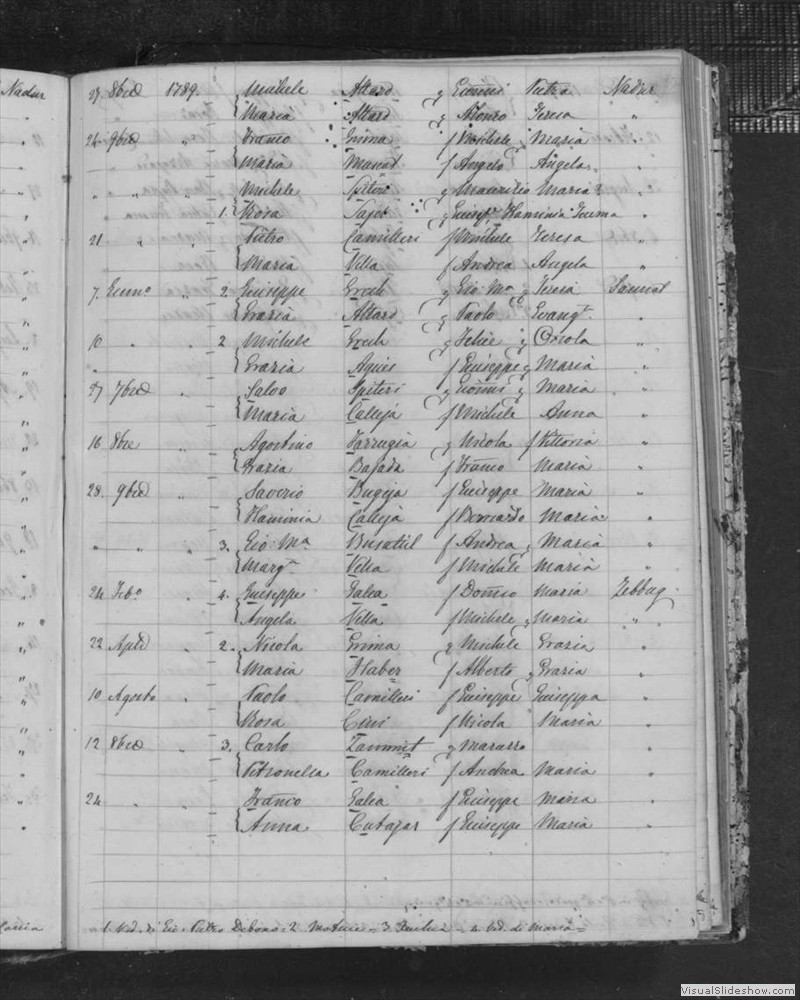 Nadur
27 8bre 1789. Michele Attard q Gionni Pietro Nadur
Maria Attard q Alonso Teresa "
24 9bre " Franco Grima f Michele Maria "
Maria f Angelo Angela "
Michele Spiteri q Maurizio Maria "
1. Rosa q Flaminia Gemma "
21 " " Pietro Camilleri f Michele Teresa "
Maria Vella f Andrea Angela "
7. " 2. Giuseppe Grech q Gio Ma q Teresa Sannat
Grazia Attard q Paolo Evangta "
10 " " 2 Michele Grech q Felice q Orsola "
Grazia Agius f Giuseppe q Maria "
27 7bre " Salvo Spiteri q Gionni q Maria "
Maria Calleja f Michele Anna "
16 8bre " Agostino Farrugia q Nicola f Vittoria "
Grazia Bajada f Franco Maria "
28. 9bre " Saverio Bugeja f Giuseppe Maria "
Flaminia Calleja f Bernardo Maria "
" " " 3. Gio Ma Busuttil f Andrea Maria "
Marga Vella f Michele Maria "
24 Febo " 4. Giuseppe Galea f Domco Maria Zebbug
Angela Vella f Michele Maria "
22 Aple " 2. Nicola Grima q Michele Grazia "
Maria Haber f Alberto q Grazia "
10 Agosto " Paolo Camilleri f Giuseppe Giuseppa "
Rosa Cini f Nicola Maria "
12 8bre " 3. Carlo Zammit q "
Petronella Camilleri f Andrea Maria "
24 " " Franco Galea f Giuseppe Maria "
Anna Cutajar f Giuseppe Maria "
1. Ved. di Gio. Pietro Debono - 2 - 3 - 4. Ved. di Maria
VisualSlideshow.com